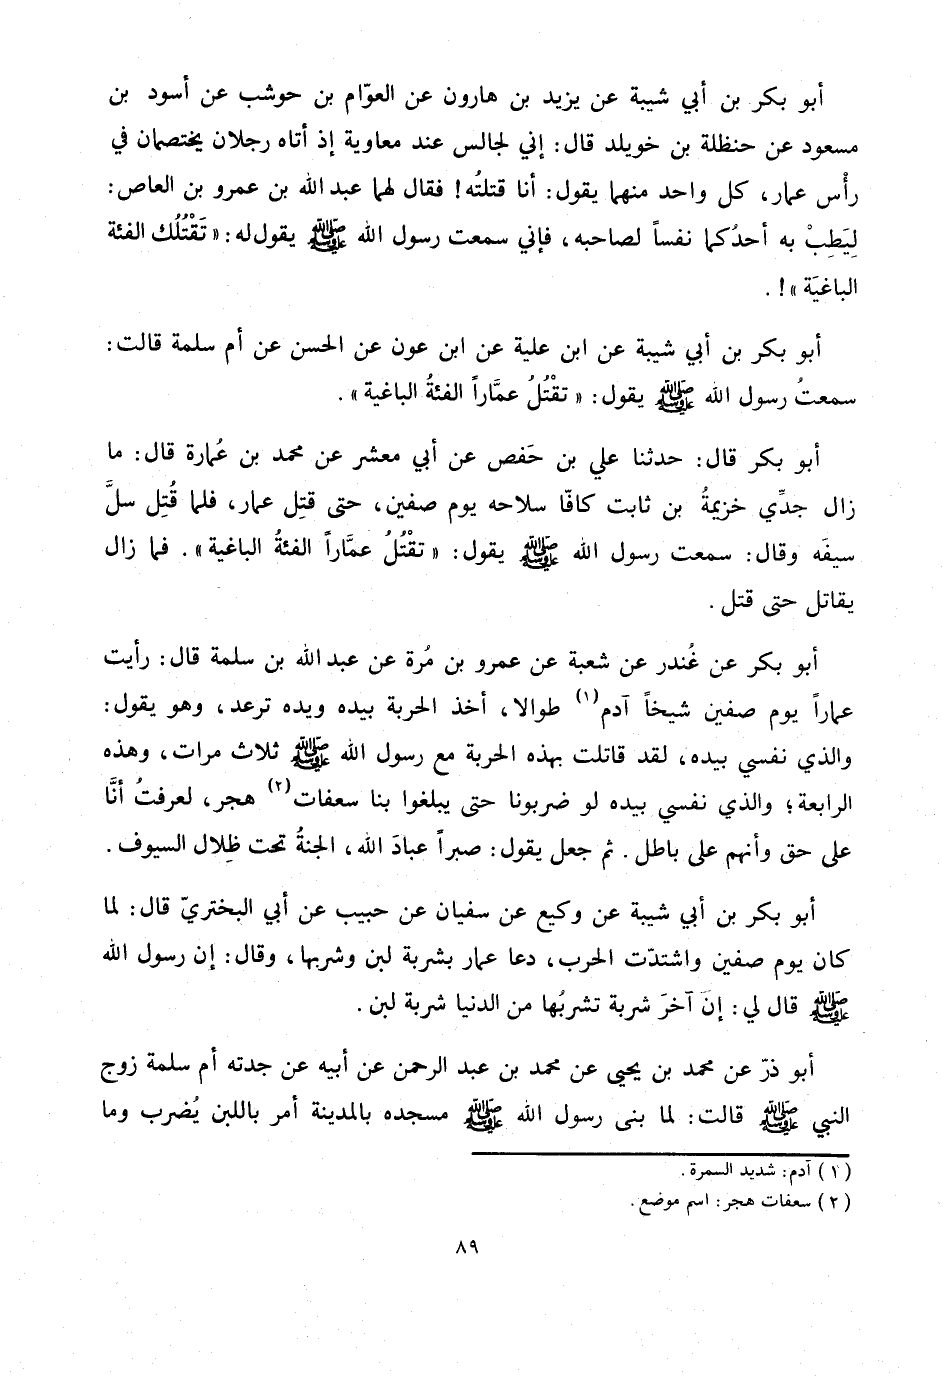 أبو بكر بن أبي شيبة عن يزيد بن هارون عن العوّام بن حوشب عن أسود بن
مسعود عن حنظلة بن خويلد قال: إني لجالس عند معاوية إذ أتاه رجلان يختصمان في
رأْس عمار، كل واحد منهما يقول: أنا قتلتُه! فقال لهما عبد الله بن عمرو بن العاص:
لِيَطِبْ به أحدُكما نفساً لصاحبه، فإني سمعت رسول الله ﷺ يقول له: « تَقْتُلُك الفئة
الباغيَة »! .
أبو بكر بن أبي شيبة عن ابن علية عن ابن عون عن الحسن عن أم سلمة قالت:
سمعتُ رسول الله ﷺ يقول: « تقْتُلُ عمَّاراً الفئةُ الباغية » .
أبو بكر قال: حدثنا علي بن حَفص عن أبي معشر عن محمد بن عُمارة قال: ما
زال جدِّي خزيمةُ بن ثابت كافّا سلاحه يوم صفين، حتى قتِل عمار، فلما قُتِل سلَّ
سيفَه وقال: سمعت رسول الله ﷺ يقول: « تقْتُلُ عمَّاراً الفئةُ الباغية » . فما زال
يقاتل حتى قتل .
أبو بكر عن غُندر عن شعبة عن عمرو بن مُرة عن عبد الله بن سلمة قال: رأيت
عماراً يوم صفين شيخاً آدم(١) طوالا، أخذ الحربة بيده ويده ترعد، وهو يقول:
والذي نفسي بيده، لقد قاتلت بهذه الحربة مع رسول الله ﷺ ثلاث مرات، وهذه
الرابعة؛ والذي نفسي بيده لو ضربونا حتى يبلغوا بنا سعفات(٢) هجر، لعرفتُ أنَّا
على حق وأنهم على باطل . ثم جعل يقول: صبراً عبادَ الله، الجنةُ تحت ظِلال السيوف .
أبو بكر بن أبي شيبة عن وكيع عن سفيان عن حبيب عن أبي البختريّ قال: لما
كان يوم صفين واشتدّت الحرب، دعا عمار بشربة لبن وشربها، وقال: إن رسول الله
ﷺ قال لي: إنَ آخرَ شربة تشربُها من الدنيا شربة لبن .
أبو ذرّ عن محمد بن يحيى عن محمد بن عبد الرحمن عن أبيه عن جدته أم سلمة زوج
النبي ﷺ قالت: لما بنى رسول الله ﷺ مسجده بالمدينة أمر باللبن يُضرب وما
(١) آدم: شديد السمرة .
(٢) سعفات هجر: اسم موضع .
٨٩